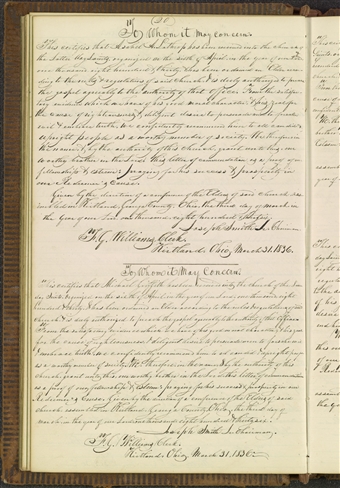 (30)
To Whom it May Concern
This certifies that Michael has been received into the church of
the Latter Day Saints, organized on the sixth of April, in the year of our Lord
one thousand eight hundred & thirty, & has been ordained an Elder
according to the rules & regulations of said church, & is duly authorized to preach
the gospel agreeably to the authority of that office. From the satisfactory
evidence which we have of his good moral character, & his zeal for
the cause of righteousness, & diligent desire to persuade men to forsake
evil & embrace truth, we confidently recommend him to all candid &
upright people as a worthy member of society. We therefore,
in the name, & by the authority of this church, grant unto this, our
worthy brother in the Lord, this letter of commendation as a proof of our
fellowship & esteem: praying for his success & prosperity in
our Redeemer's cause.
Given by the direction of a conference of the Elders of said church
assembled in Kirtland, Geauga County, Ohio, the third day of March, in
the year of our Lord one thousand eight hundred & thirty six.
Joseph Smith Jr. Chairman
F. G. Williams Clerk.
Kirtland, Ohio, March 31, 1836.
To Whom it May Concern
This certifies that Michael Griffith has been received into the church of the Latter
Day Saints, organized on the sixth of April, in the year of our Lord one thousand eight
hundred & thirty, & has been ordained an Elder according to the rules & regulations of said
church, & is duly authorized to preach the gospel agreeably to the authority of that office.
From the satisfactory evidence which we have of his good moral character, & his zeal
for the cause of righteousness, & diligent desire to persuade men to forsake evil
& embrace truth, we confidently recommend him to all candid & upright people
as a worthy member of society. We therefore, in the name, & by the authority of this
church, grant unto this, our worthy brother in the Lord, this letter of commendation
as a proof of our fellowship & esteem: praying for his success & prosperity in our
Redeemer's cause. Given by the direction of a conference of the Elders of said
church assembled in Kirtland, Geauga County, Ohio, the third day of
March, in the year of our Lord one thousand eight hundred & thirty six.
Joseph Smith Jr. Chairman,
F. G. Williams Clerk.
Kirtland, Ohio, March 31, 1836.